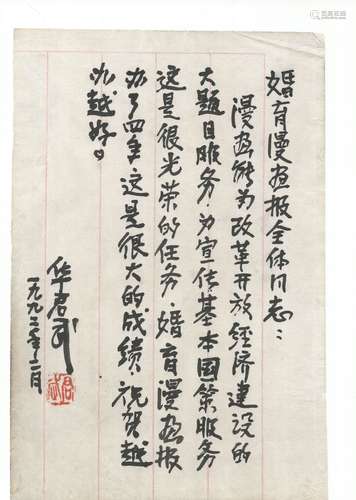 婚育漫画报全体同志：
漫画能为改革开放经济建设的
大题目服务，为宣传基本国策服务
这是很光荣的任务，婚育漫画报
办了四年，这是很大的成绩，祝贺越
办越好。
华君武
一九九二年十二月